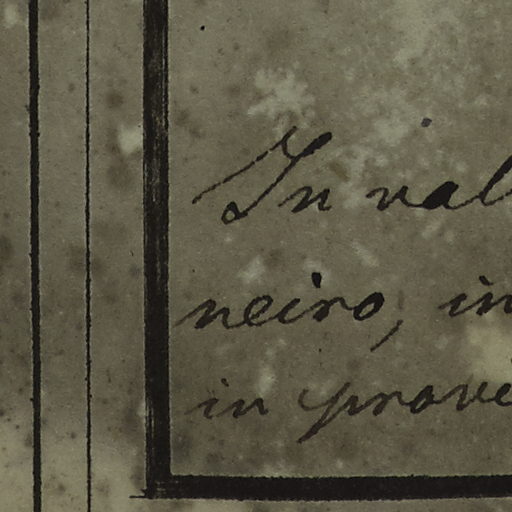 In val
neiro, in
in prove